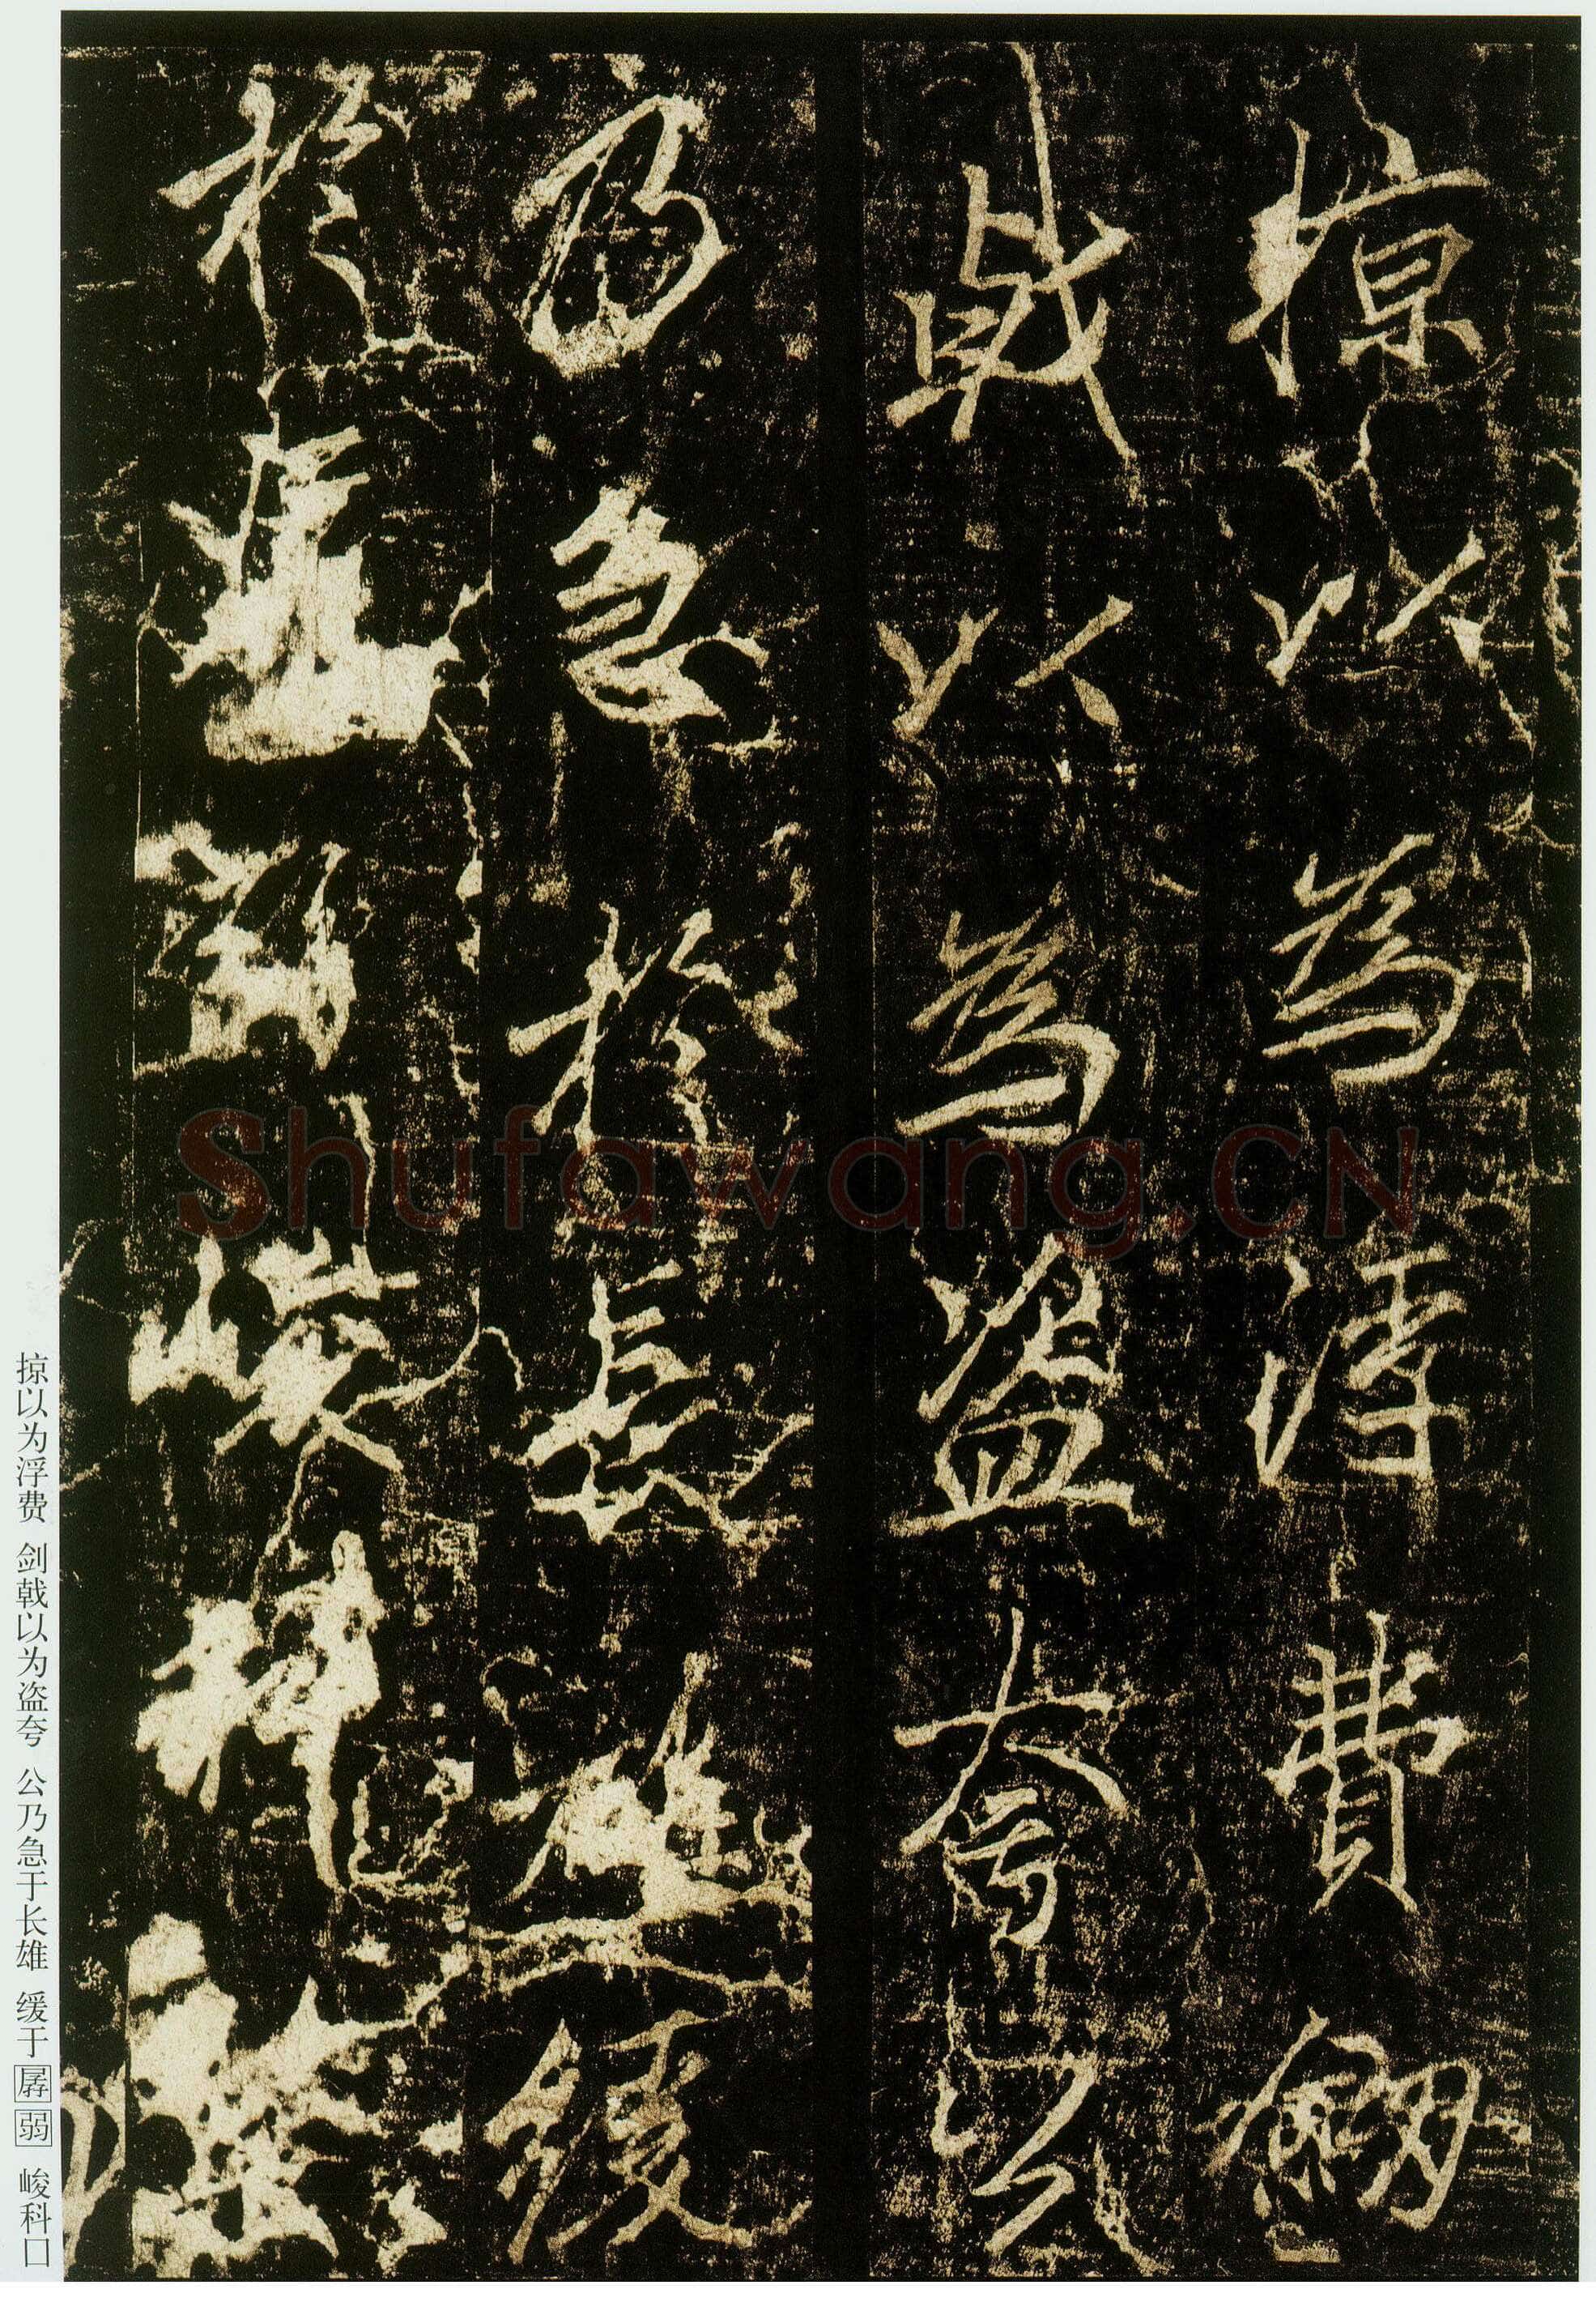 掠以為浮費劒
戟以為盗夸公
乃急於長雄緩
於孱弱峻科
掠以为浮费 剑戟以为盗夸 公乃急于长雄 缓于孱弱 峻科口
Shufawang.CN